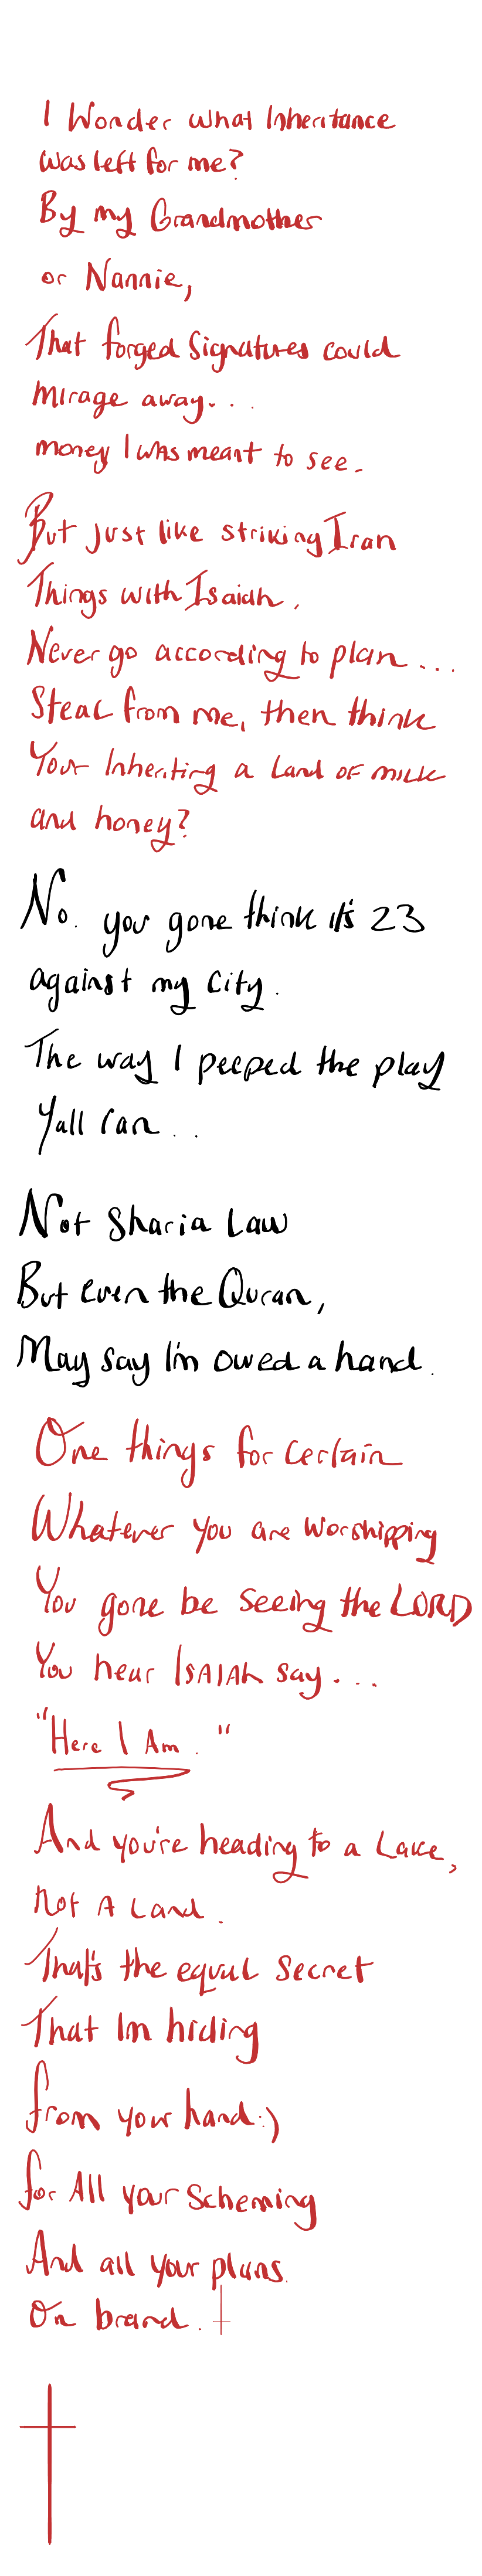 I Wonder what Inheritance
was left for me?
By my Grandmother
or Nannie,
That forged Signatures could
mirage away...
money I was meant to see.
But just like striking Iran
Things with Isaiah,
Never go according to plan...
Steal from me, then think
Your Inheriting a Land of milk
and honey?
No. you gone think it's 23
against my city.
The way I peeped the play
Yall ran..
Not Sharia Law
But even the Quran,
May say I'm owed a hand.
One things for certain
Whatever you are worshipping
You gone be seeing the LORD
You hear ISAIAh say...
"Here I Am."
And you're heading to a Lake,
not A Land.
That's the equal secret
That Im hiding
from your hand:)
for All your Scheming
And all your plans.
On brand.